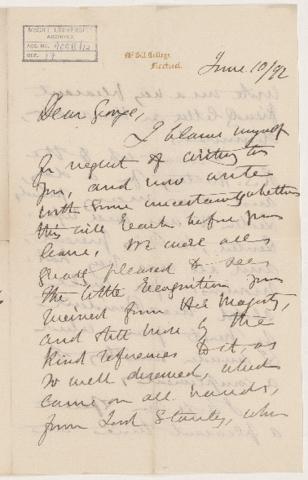 McGILL UNIVERSITY
ARCHIVES
ACC. NO.
REF.
McGill College
Montreal.
June 10/92
Dear George,
I blame myself
for neglect of writing to
you, and now write
with some uncertainty whether
this will reach before you
leave. We were all
pleased to see
the little recognition you
received from Her Majesty,
and still more by the
kind references to it, as
so well deserved, which
came on all hands,
from Lord Stanley, who